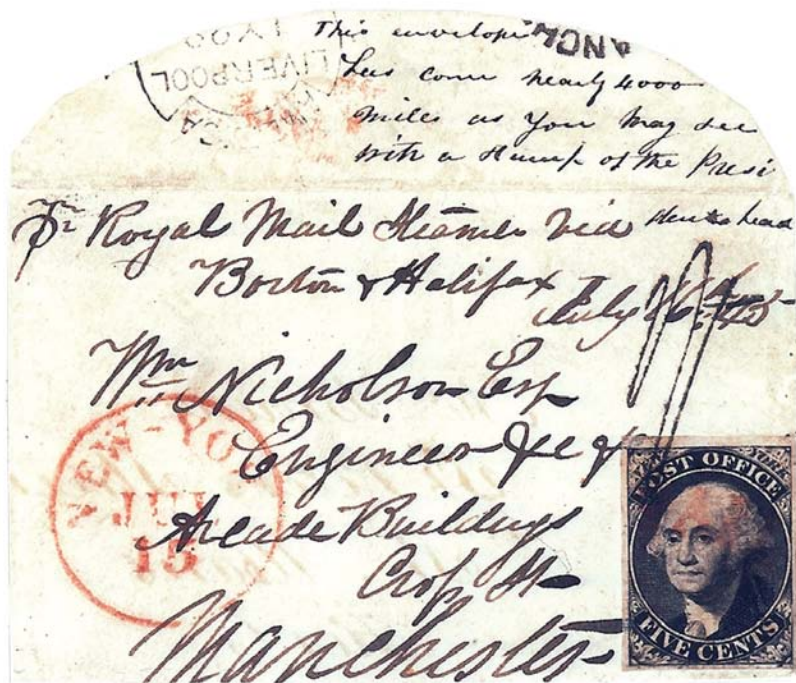 This envelope
has come nearly 4000
miles as you may see
with a stamp of the Presi
dents head
Pr Royal Mail Steamer via
Boston & Halifax
July 16th /45
Wm Nicholson Esq
Engineer &c &c
Arcade Buildings
Crofs St
Manchester
NEW-YOR
JUL
15
POST OFFICE
FIVE CENTS
LIVERPOOL
ANCH